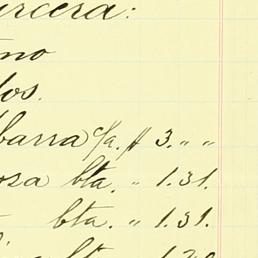 ercera:
ino
dos.
barra c/a. # 3. „ „
osa bta. „ 1.31.
bta. „ 1.31.